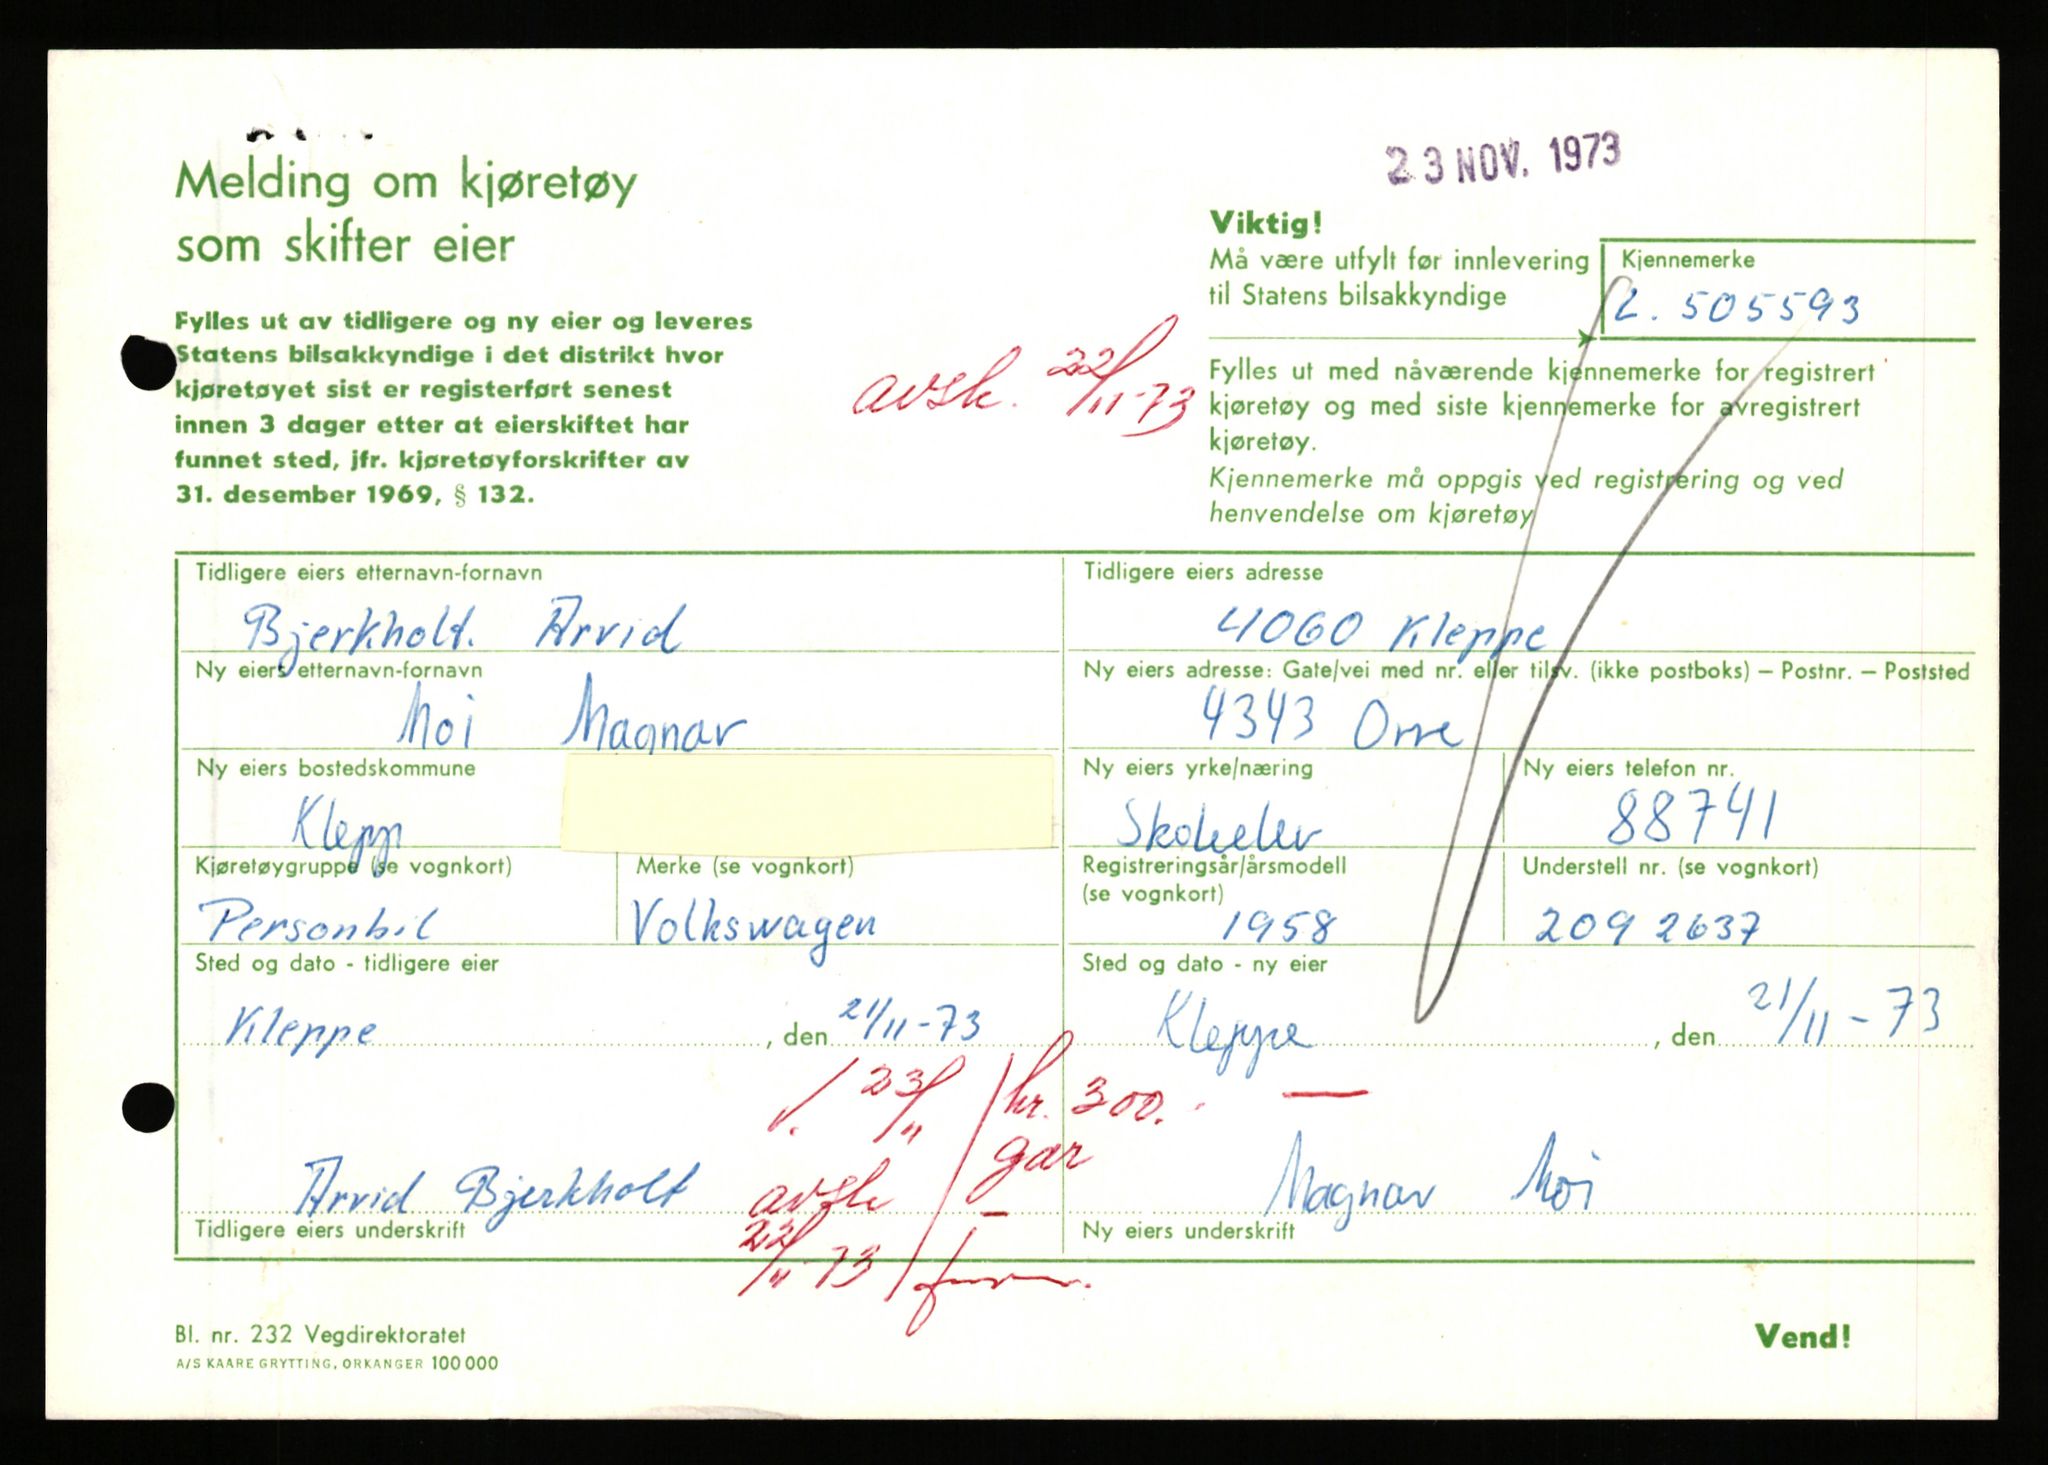 23 NOV. 1973
Melding om kjøretøy
som skifter eier
Fylles ut av tidligere og ny eier og leveres
Statens bilsakkyndige i det distrikt hvor
kjøretøyet sist er registerført senest
innen 3 dager etter at eierskiftet har
funnet sted, jfr. kjøretøyforskrifter av
31. desember 1969, § 132.
avsk. 22/11-73
Viktig!
Må være utfylt før innlevering
til Statens bilsakkyndige
Kjennemerke
L. 505593
Fylles ut med nåværende kjennemerke for registrert
kjøretøy og med siste kjennemerke for avregistrert
kjøretøy.
Kjennemerke må oppgis ved registrering og ved
henvendelse om kjøretøy
Tidligere eiers etternavn-fornavn
Bjerkholt. Arvid
Tidligere eiers adresse
4060 Kleppe
Ny eiers etternavn-fornavn
Moi Magnar
Ny eiers adresse: Gate/vei med nr. eller tilsv. (ikke postboks) – Postnr. – Poststed
4343 Orre
Ny eiers bostedskommune
Klepp
Ny eiers yrke/næring
Skoleelev
Ny eiers telefon nr.
88741
Kjøretøygruppe (se vognkort)
Personbil
Merke (se vognkort)
Volkswagen
Registreringsår/årsmodell
(se vognkort)
1958
Understell nr. (se vognkort)
209 2637
Sted og dato - tidligere eier
Kleppe, den 21/11-73
Sted og dato - ny eier
Kleppe, den 21/11-73
23/11
kr. 300.-
gar
Arvid Bjerkholt
avsk
22/11-73
Tidligere eiers underskrift
Magnar Moi
Ny eiers underskrift
Bl. nr. 232 Vegdirektoratet
A/S KAARE GRYTTING, ORKANGER 100 000
Vend!